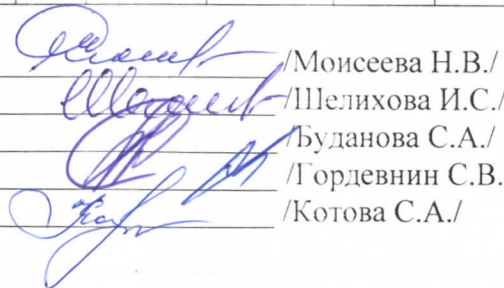 /Моисеева Н.В./
/Шелихова И.С./
/Буданова С.А./
/Гордевнин С.В.
/Котова С.А./